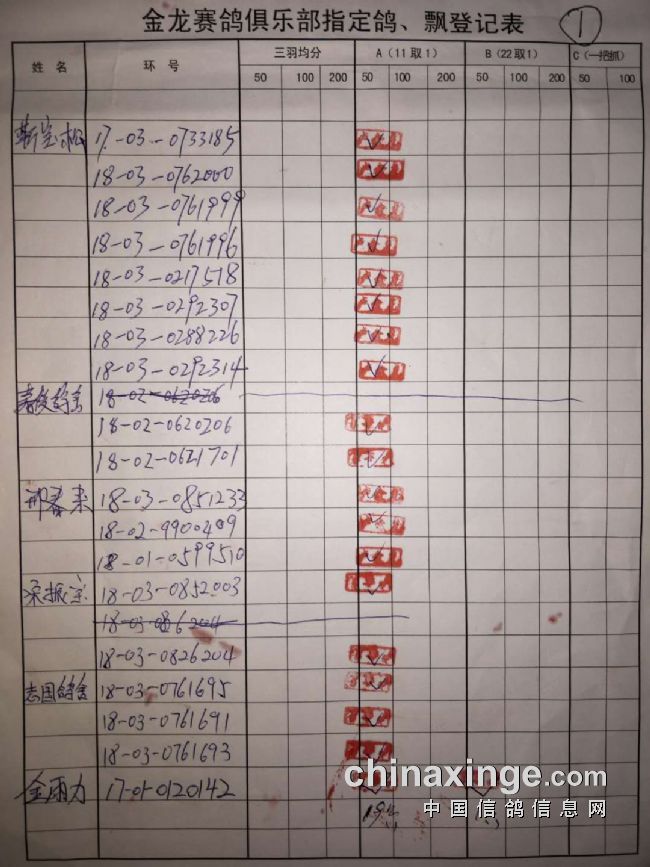 金龙赛鸽俱乐部指定鸽、飘登记表 ①
姓名 环号 三羽均分 A(11取1) B(22取1) C(一把抓)
50 100 200 50 100 200 50 100 200 50 100
靳宝松 17-03-0733185
18-03-0762000
18-03-0761999
18-03-0761996
18-03-0217518
18-03-0292307
18-03-0288226
18-03-0292314
18-02-0620206
18-02-0620206
18-02-0621701
邢春来 18-03-0851233
18-02-9900409
18-01-0599510
18-03-0852003
18-03-0826204
志国鸽舍 18-03-0761695
18-03-0761691
18-03-0761693
金雨力 17-01-0120142
chinaxinge.com
中国信鸽信息网